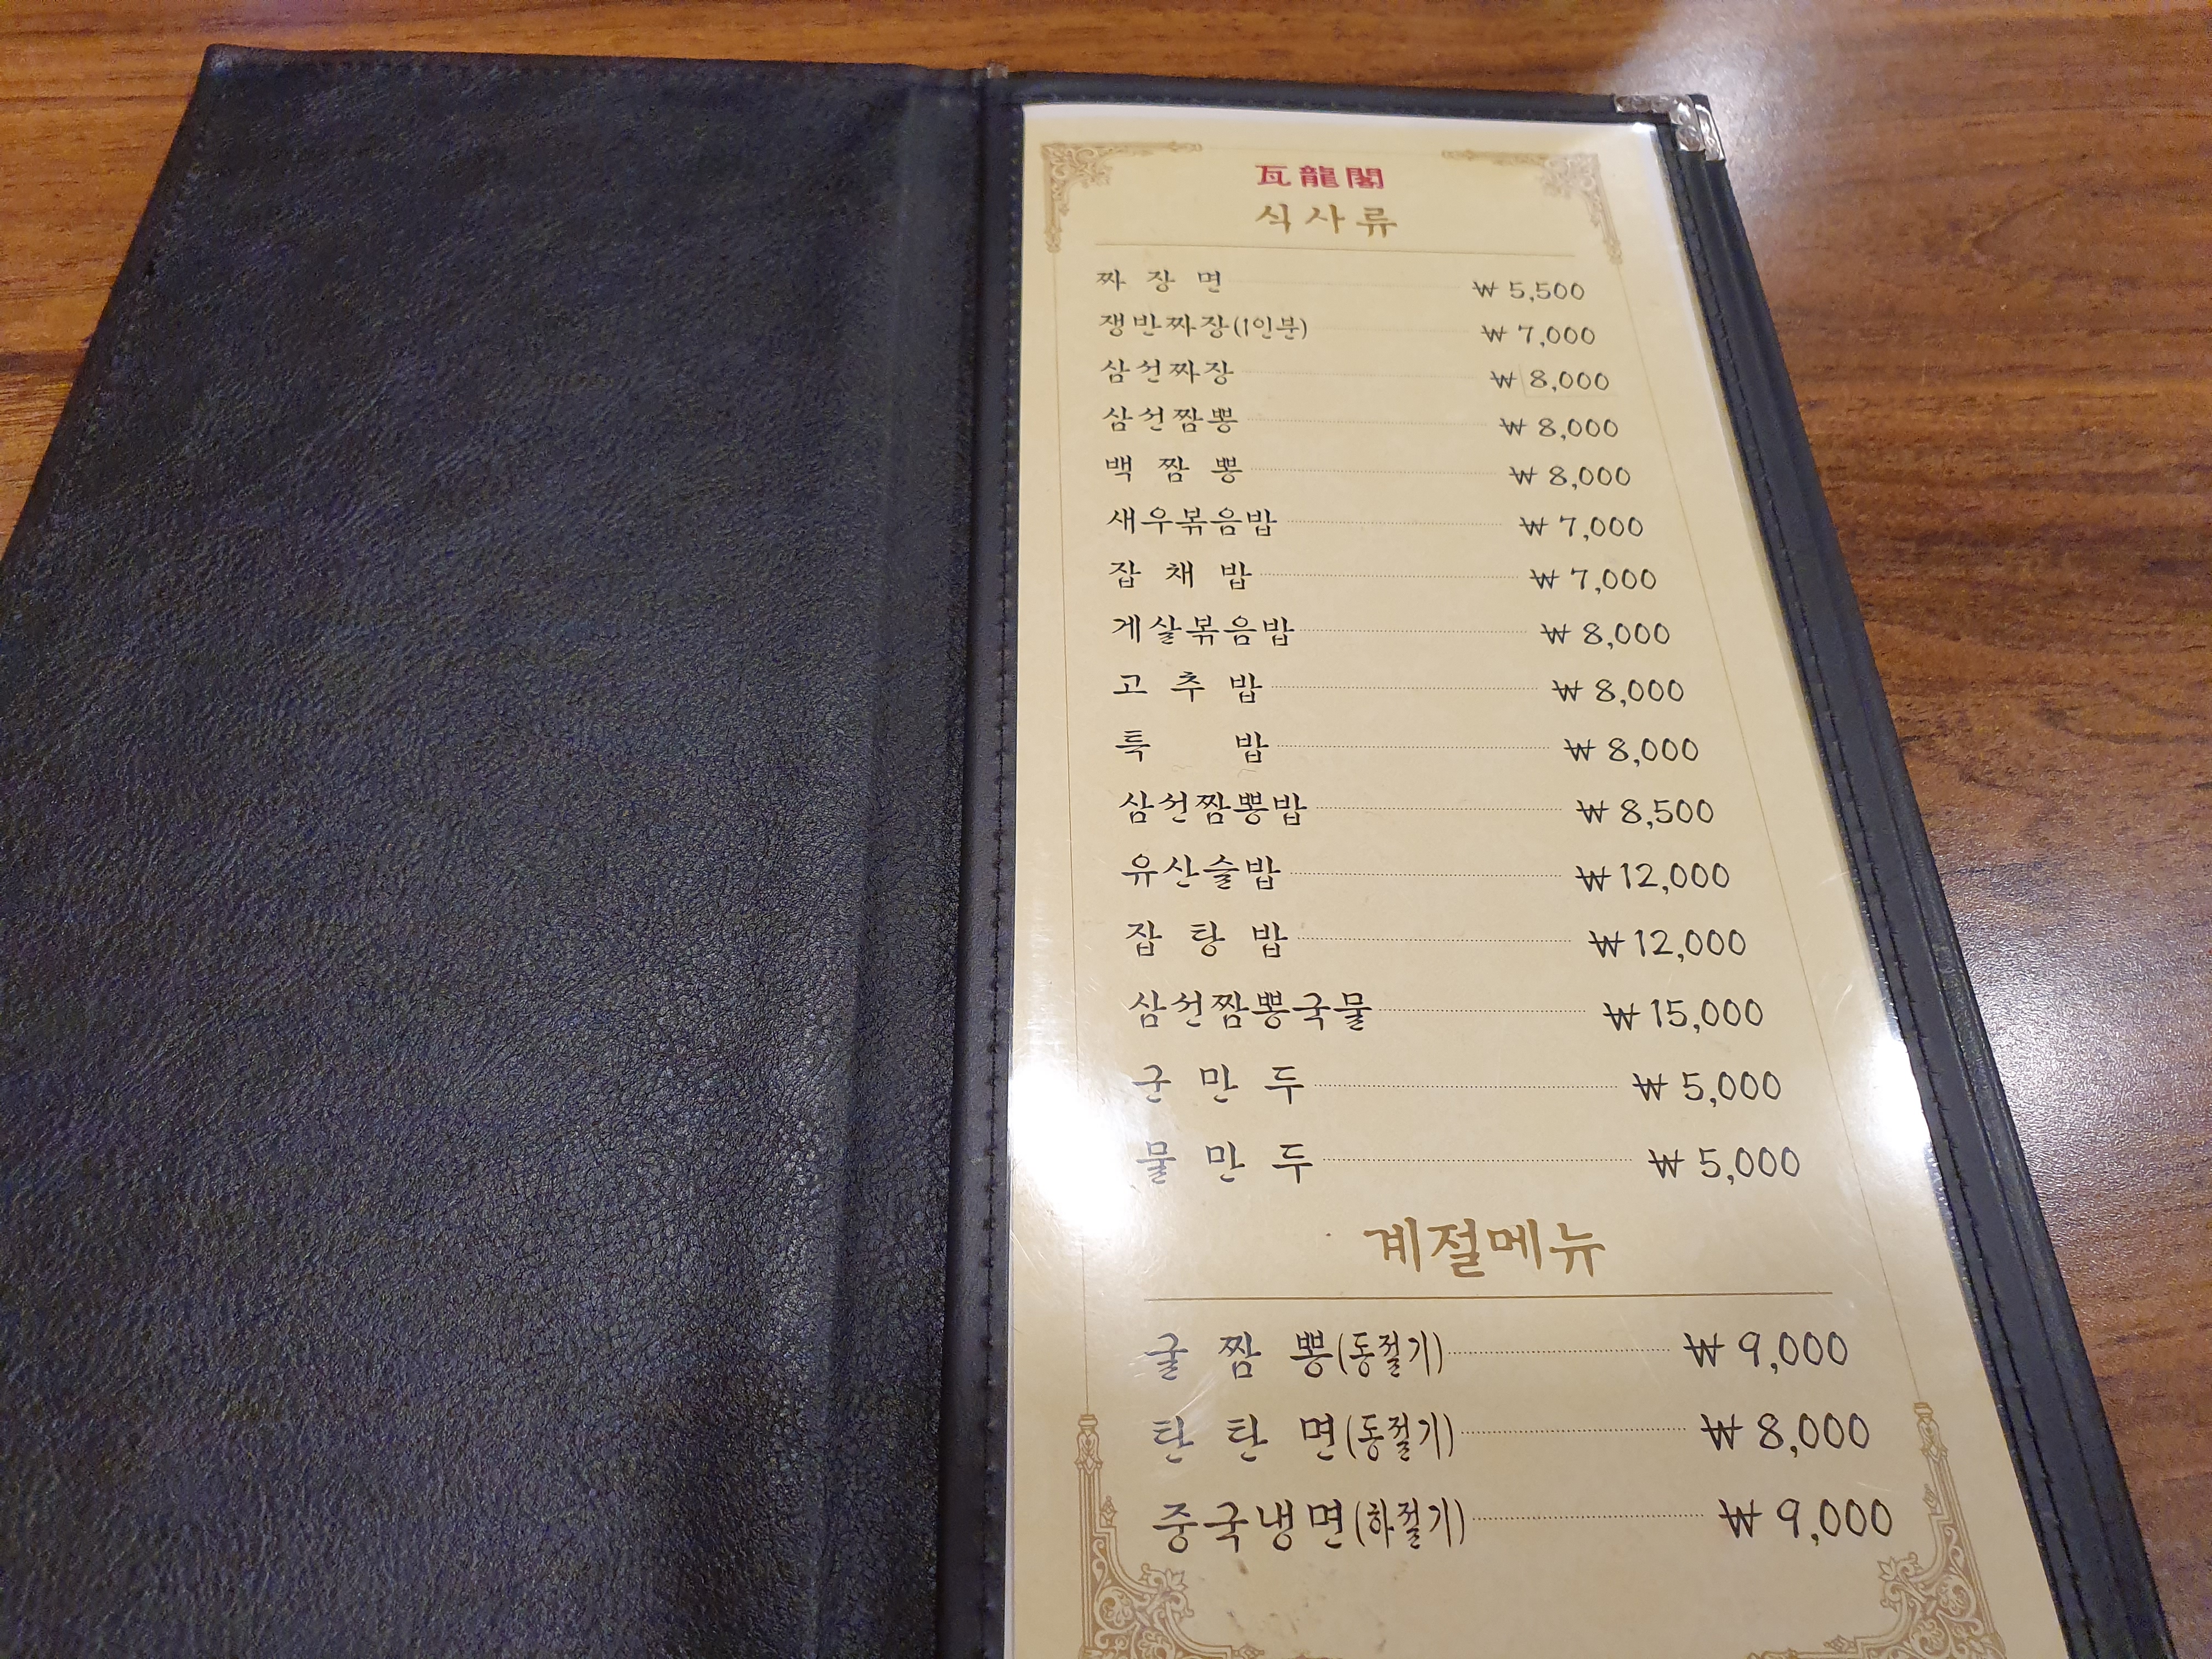 瓦龍閣
식사류
짜 장 면 ₩ 5,500
쟁반짜장(1인분) ₩ 7,000
삼선짜장 ₩ 8,000
삼선짬뽕 ₩ 8,000
백 짬 뽕 ₩ 8,000
새우볶음밥 ₩ 7,000
잡 채 밥 ₩ 7,000
게살볶음밥 ₩ 8,000
고 추 밥 ₩ 8,000
특 밥 ₩ 8,000
삼선짬뽕밥 ₩ 8,500
유산슬밥 ₩ 12,000
잡 탕 밥 ₩ 12,000
삼선짬뽕국물 ₩ 15,000
군 만 두 ₩ 5,000
물 만 두 ₩ 5,000
계절메뉴
굴 짬 뽕(동절기) ₩ 9,000
탄 탄 면(동절기) ₩ 8,000
중국냉면(하절기) ₩ 9,000